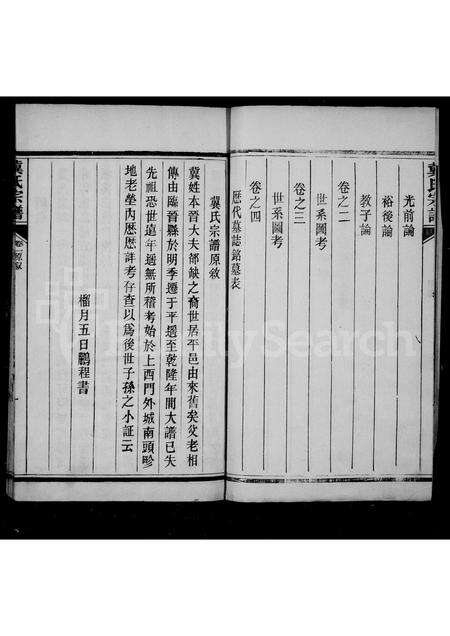 冀氏宗譜
光前論
裕後論
教子論
卷之二
世系圖考
卷之三
世系圖考
卷之四
歷代墓誌銘墓表
冀氏宗譜原敘
冀姓本晉大夫郤缺之裔世居平邑由來舊矣父老相
傳由臨晉縣於明季遷于平遥至乾隆年間大譜已失
先祖恐世遠年遥無所稽考始於上西門外城南頭畛
地老塋內歷歷詳考存查以為後世子孫之小証云
榴月五日鵬程書
冀氏宗譜
FamilySearch